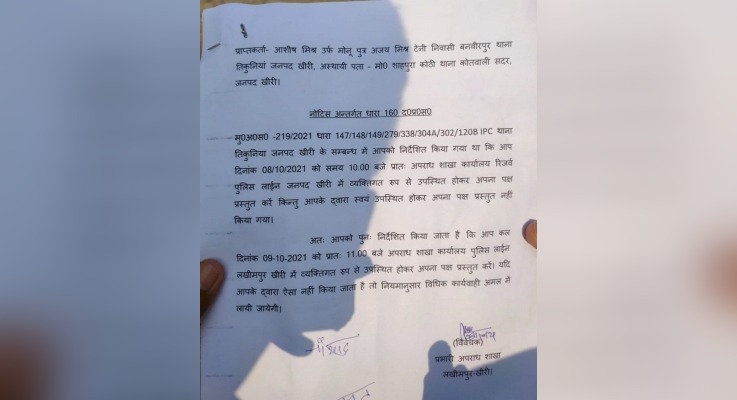 प्राप्तकर्ता- आशीष मिश्र उर्फ मोनू पुत्र अजय मिश्र टेनी निवासी बनवीरपुर थाना
तिकुनियां जनपद खीरी, अस्थायी पता - मो0 शाहपुरा कोठी थाना कोतवाली सदर,
जनपद खीरी।
नोटिस अन्तर्गत धारा 160 द0प्र0स0
मु0अ0स0 -219/2021 धारा 147/148/149/279/338/304A/302/120B IPC थाना
तिकुनिया जनपद खीरी के सम्बन्ध में आपको निर्देशित किया गया था कि आप
दिनांक 08/10/2021 को समय 10.00 बजे प्रातः अपराध शाखा कार्यालय रिजर्व
पुलिस लाईन जनपद खीरी में व्यक्तिगत रुप से उपस्थित होकर अपना पक्ष
प्रस्तुत करें किन्तु आपके द्वारा स्वयं उपस्थित होकर अपना पक्ष प्रस्तुत नहीं
किया गया।
अतः आपको पुनः निर्देशित किया जाता है कि आप कल
दिनांक 09-10-2021 को प्रातः 11.00 बजे अपराध शाखा कार्यालय पुलिस लाईन
लखीमपुर खीरी में व्यक्तिगत रुप से उपस्थित होकर अपना पक्ष प्रस्तुत करें। यदि
आपके द्वारा ऐसा नहीं किया जाता है तो नियमानुसार विधिक कार्यवाही अमल में
लायी जायेगी।
(विवेचक)
प्रभारी अपराध शाखा
लखीमपुर-खीरी।